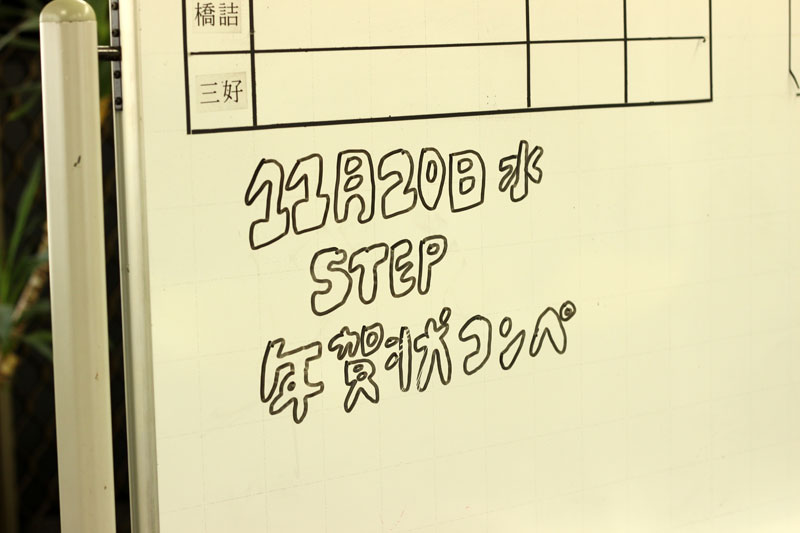 橋詰
三好
11月20日水
STEP
年賀状コンペ